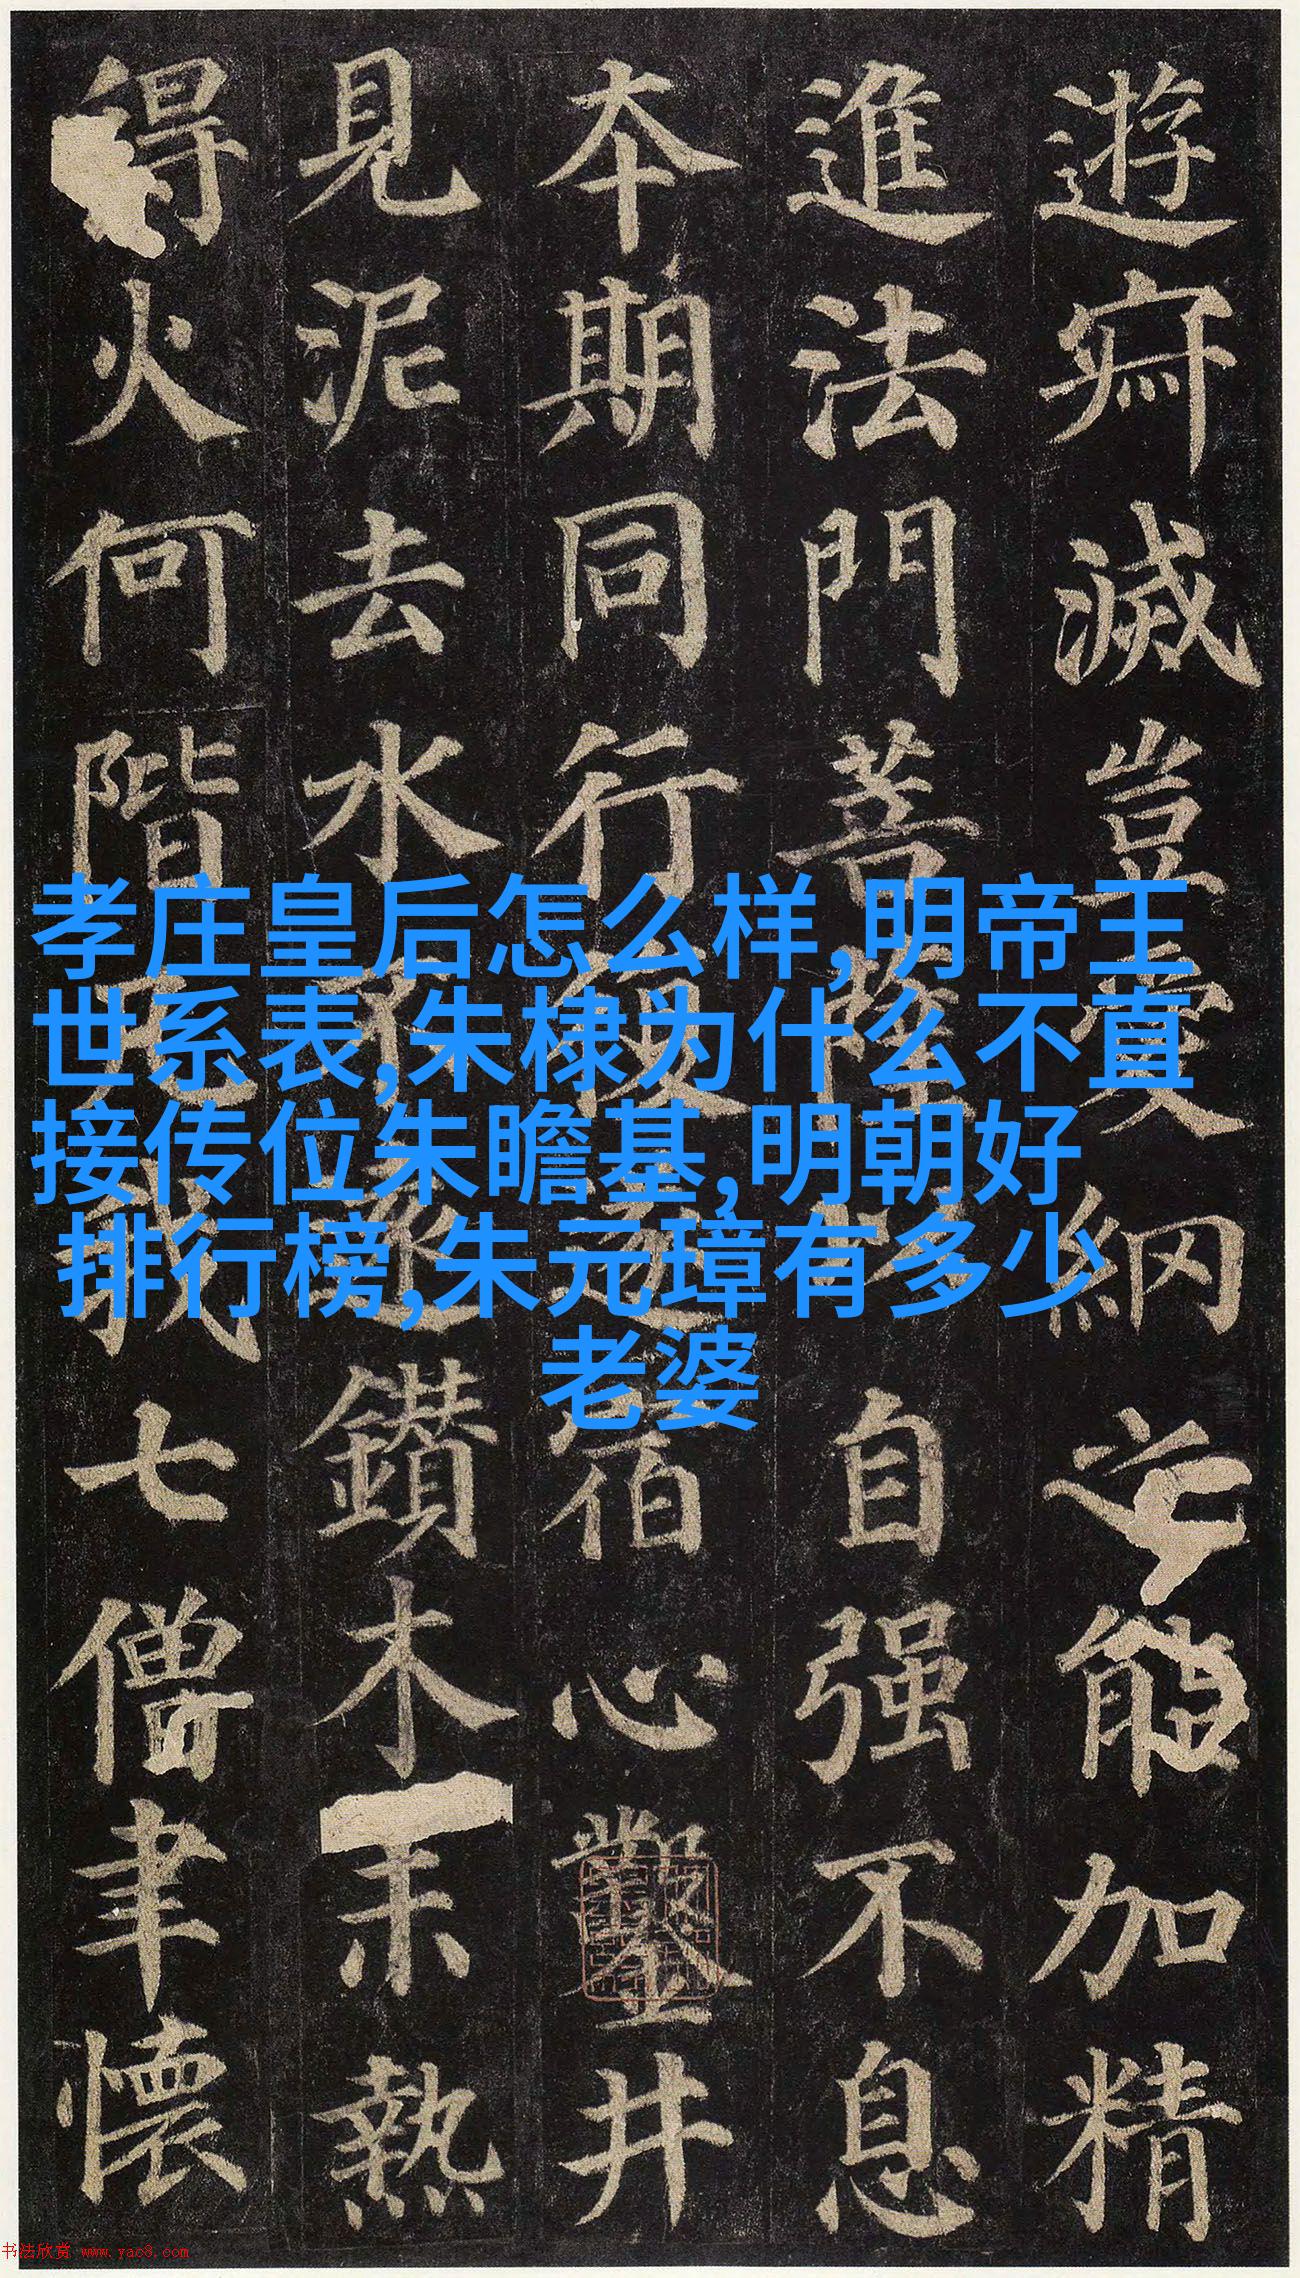 遊寂滅豈愛網之能加精
進法門菩薩以自强不息
本期同行復遂宿心鑿井
見泥去水不遠鑽木未熱
得火何階凡我七僧聿懷
孝庄皇后怎么样,明帝王
世系表,朱棣为什么不直
接传位朱瞻基,明朝好
排行榜,朱元璋有多少
老婆
书法欣赏 www.yac8.com